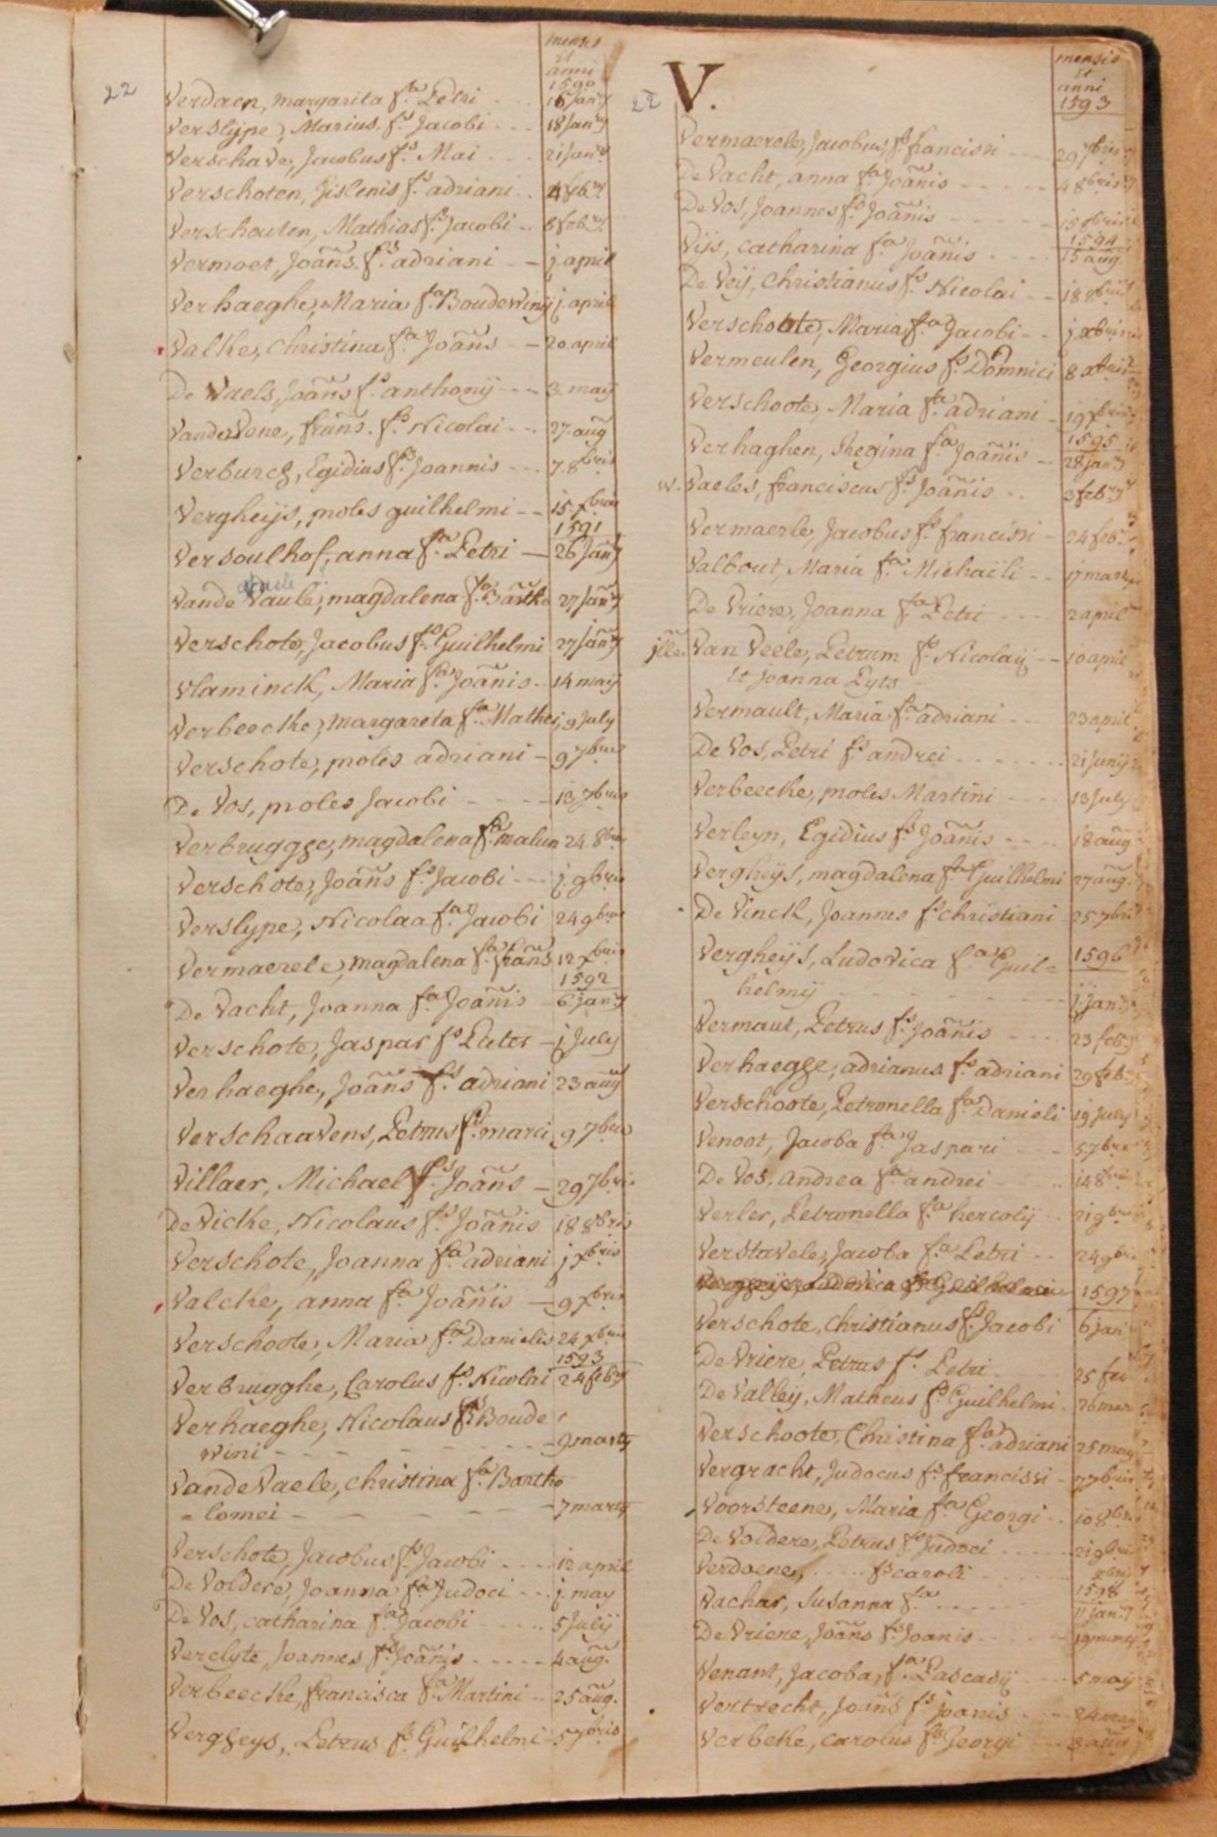 22
mensis
et
anni
1590
Verdaen, margarita fa Petri 16 Jan
Verslype, Marius fs Jacobi 18 Jan
Verschave, Jacobus fs Mai 21 Jan
Verschoten, Jislenis fs adriani 4 feb
Verschouten, Mathias fs Jacobi 6 feb
Vermoet, Joans fs adriani j april
Verhaeghe, Maria fa Boudewiny j. april
Valke, Christina fa Joans 20 april
De Vaels, Joans fs anthonij 3 may
Vandevene, frans. fs Nicolai 27 aug
Verburch, Egidius fs Joannis 7 8bris
Vergheijs, proles guilhelmi 15 xbris
1591
Versoulhof, anna fa Petri 26 Jan
Vande Vaule, magdalena fa Bartho 27 Jan
Verschote, Jacobus fs Guilhelmi 27 Jan
Vlaminck, Maria fa Joanis 14 may
Verbeecke, margareta fa Mathei 9 July
Verschote, proles adriani 9 7bris
De Vos, proles Jacobi 18 7bris
Verbrugge, magdalena fa 24 8bris
Verschote, Joans fs Jacobi j. 9bris
Verslype, Nicolaa fa Jacobi 24 9bris
Vermaerele, magdalena fa frans 12 xbris
1592
De Vacht, Joanna fa Joanis 6 Jan
Verschote, Jaspar fs Pieter j July
Verhaeghe, Joans fs adriani 23 aug
Verschaavens, Petrus fs marci 9 7bris
Villaer, Michael fs Joans 29 7bris
De Vicke, Nicolaus fs Joanis 18 8bris
Verschote, Joanna fa adriani j xbris
Valcke, anna fa Joanis 9 xbris
Verschoote, Maria fa Danielis 24 xbris
1593
Verbrugghe, Carolus fs Nicolai 24 feb
Verhaeghe, Nicolaus fs Boude
wini 9 marty
Vande Vaele, Christina fa Bartho
lomei 7 marty
Verschote, Jacobus fs Jacobi 12 april
De Voldere, Joanna fa Judoci j. may
De Vos, catharina fa Jacobi 5 Julij
Verclyte, Joannes fs Joanis 4 aug.
Verbeecke, francisca fa Martini 25 aug.
Vergheys, Petrus fs Guilhelmi 5 7bris
22 V.
mensis
et
anni
1593
Vermaerele, Jacobus fs francisci 29 7bris
De Vacht, anna fa Joanis 4 8bris
De Vos, Joannes fs Joanis 15 xbris
1594
Viis, catharina fa Joanis 15 aug
De Veij, Christianus fs Nicolai 18 8bris
Verschoote, Maria fa Jacobi j xbris
Vermeulen, Georgius fs Domnici 8 xbris
Verschoote, Maria fa adriani 19 xbris
1595
Verhaghen, Regina fa Joanis 28 jan
w. Vaeles, franciscus fs Joanis 2 feb
Vermaerle, Jacobus fs francisci 24 feb
Valbout, Maria fa Michaeli 17 mar
De Vriere, Joanna fa Petri 2 april
jlle. Van Veele, Petrum fs Nicolaij 10 april
et Joanna Eyts
Vermault, Maria fa adriani 23 april
De Vos, Petri fs andrei 21 Junij
Verbeecke, proles Martini 13 July
Verleyn, Egidius fs Joanis 18 aug
Vergheijs, magdalena fa Guilhelmi 27 aug.
De Vinck, Joannes fs christiani 25 7bris
Vergheijs, Ludovica fa Guil= 1596
helmij j jan
Vermaut, Petrus fs Joanis 23 feb
Verhaegge, adrianus fs adriani 29 feb
Verschoote, Petronella fa Danieli 19 July
Venoot, Jacoba fa Jaspari 5 7bris
De Vos, andrea fa andrei 14 8bris
Verler, Petronella fa hercoly 21 9bris
Verstavele, Jacoba fa Petri 24 9bris
1597
Verschote, Christianus fs Jacobi 6 jan
De Vriere, Petrus fs Petri 25 feb
De Valleij, Matheus fs Guilhelmi 26 mar
Verschoote, Christina fa adriani 25 may
Vergracht, Judocus fs francisci 7 7bris
Voorsteene, Maria fa Georgi 10 8bris
De Voldere, Petrus fs Judoci 21 9bris
Verdoene, fs caroli xbris
1598
Vachar, Susanna fa 11 jan
De Vriere, Joans fs Joanis 19 marty
Venant, Jacoba, fa Pascasij 5 may
Vertrecht, Joans fs Joanis 24 may
Verbeke, carolus fs Georgi 3 aug